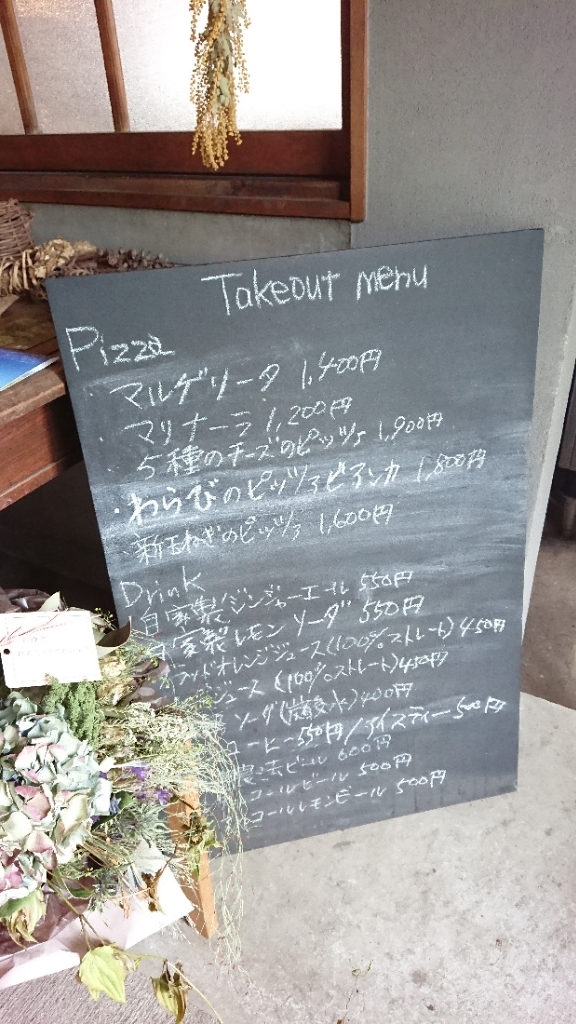 Takeout menu
Pizza
・マルゲリータ 1,400円
・マリナーラ 1,200円
・5種のチーズのピッツァ 1,900円
・わらびのピッツァビアンカ 1,800円
・新玉ねぎのピッツァ 1,600円
Drink
自家製ジンジャーエール 550円
自家製レモンソーダ 550円
ブラッドオレンジジュース(100%ストレート)450円
ジュース(100%ストレート)450円
ソーダ(炭酸水)400円
コーヒー550円/アイスティー500円
ビール 600円
コールビール 500円
コールレモンビール 500円